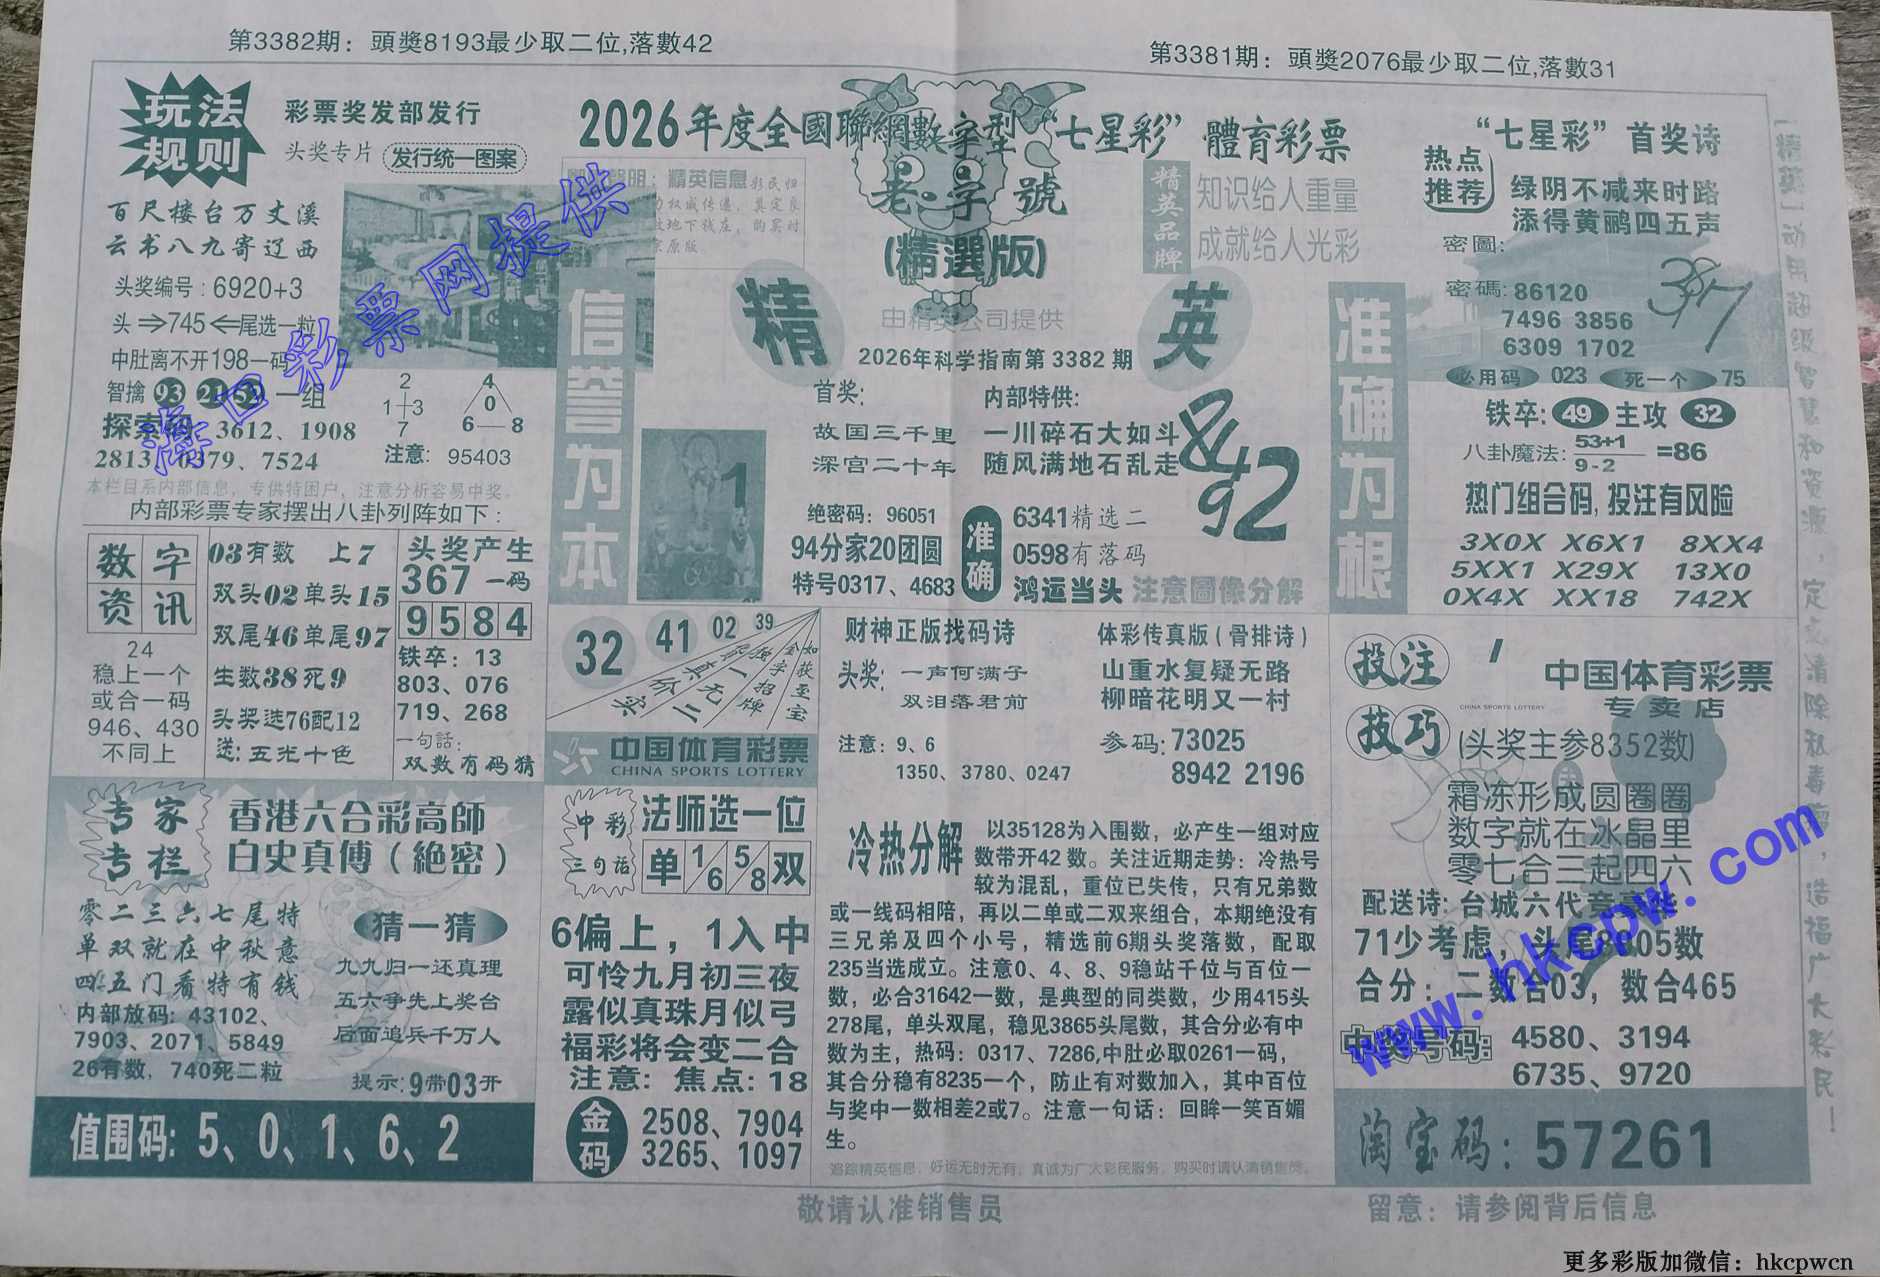 第3382期：頭獎8193最少取二位,落數42
第3381期：頭獎2076最少取二位,落數31
玩法
规则
彩票奖发部发行
头奖专片
发行统一图案
百尺楼台万丈溪
云书八九寄辽西
头奖编号:6920+3
头⇒745⇐尾选一粒
中肚离不开198一码
智擒 93 21 一组
探索
3612、1908
2813、0379、7524
2
1 3
7
4
0
6 8
注意: 95403
本栏目系内部信息，专供特困户，注意分析容易中奖。
内部彩票专家摆出八卦列阵如下：
数字
资讯
24
稳上一个
或合一码
946、430
不同上
03有数 上7
双头02单头15
双尾46单尾97
生数38死9
头奖选76配12
送: 五光十色
头奖产生
367一码
9584
铁卒：13
803、076
719、268
一句話：
双数有码猜
专家
专栏
香港六合彩高師
白史真傅（絶密）
零二三六七尾特
单双就在中秋意
四五门看特有钱
内部放码: 43102、
7903、2071、5849
26有数, 740死二粒
猜一猜
九九归一还真理
五六争先上奖台
后面追兵千万人
提示: 9带03开
值围码: 5、0、1、6、2
2026年度全國聯網數字型“七星彩”體育彩票
精英信息
老字號
(精選版)
由精英公司提供
精英品牌
知识给人重量
成就给人光彩
信誉为本
精
英
2026年科学指南第3382期
首奖:
故国三千里
深宫二十年
内部特供:
一川碎石大如斗
随风满地石乱走
8492
1
绝密码: 96051
94分家20团圆
特号0317、4683
准确
6341精选二
0598有落码
鸿运当头 注意圖像分解
32 41 02 39
如获至宝
金字招牌
独一无二
真价实
中国体育彩票
CHINA SPORTS LOTTERY
中彩
三句话
法师选一位
单 1/6 5/8 双
6偏上，1入中
可怜九月初三夜
露似真珠月似弓
福彩将会变二合
注意: 焦点: 18
金码
2508、7904
3265、1097
财神正版找码诗
头奖: 一声何满子
双泪落君前
注意: 9、6
1350、3780、0247
体彩传真版(骨排诗)
山重水复疑无路
柳暗花明又一村
参码: 73025
8942 2196
冷热分解
以35128为入围数，必产生一组对应
数带开42数。关注近期走势：冷热号
较为混乱，重位已失传，只有兄弟数
或一线码相陪，再以二单或二双来组合，本期绝没有
三兄弟及四个小号，精选前6期头奖落数，配取
235当选成立。注意0、4、8、9稳站千位与百位一
数，必合31642一数，是典型的同类数，少用415头
278尾，单头双尾，稳见3865头尾数，其合分必有中
数为主，热码：0317、7286,中肚必取0261一码，
其合分稳有8235一个，防止有对数加入，其中百位
与奖中一数相差2或7。注意一句话：回眸一笑百媚
生。
追踪精英信息，好运无时无有，真诚为广大彩民服务，购买时请认清销售员。
热点
推荐
“七星彩”首奖诗
绿阴不减来时路
添得黄鹂四五声
密圖:
密碼: 86120
7496 3856
6309 1702
必用码 023 死一个 75
准确为根
铁卒: 49 主攻 32
八卦魔法: 53+1/9-2 =86
热门组合码, 投注有风险
3X0X X6X1 8XX4
5XX1 X29X 13X0
0X4X XX18 742X
投注
技巧
中国体育彩票
CHINA SPORTS LOTTERY
专卖店
(头奖主参8352数)
霜冻形成圆圈圈
数字就在冰晶里
零七合三起四六
配送诗: 台城六代竞豪华
71少考虑，头尾8305数
合分: 二数合03，数合465
中奖号码:
4580、3194
6735、9720
淘宝码: 57261
敬请认准销售员
留意：请参阅背后信息
海口彩票网提供
www.hkcpw.com
更多彩版加微信：hkcpwcn